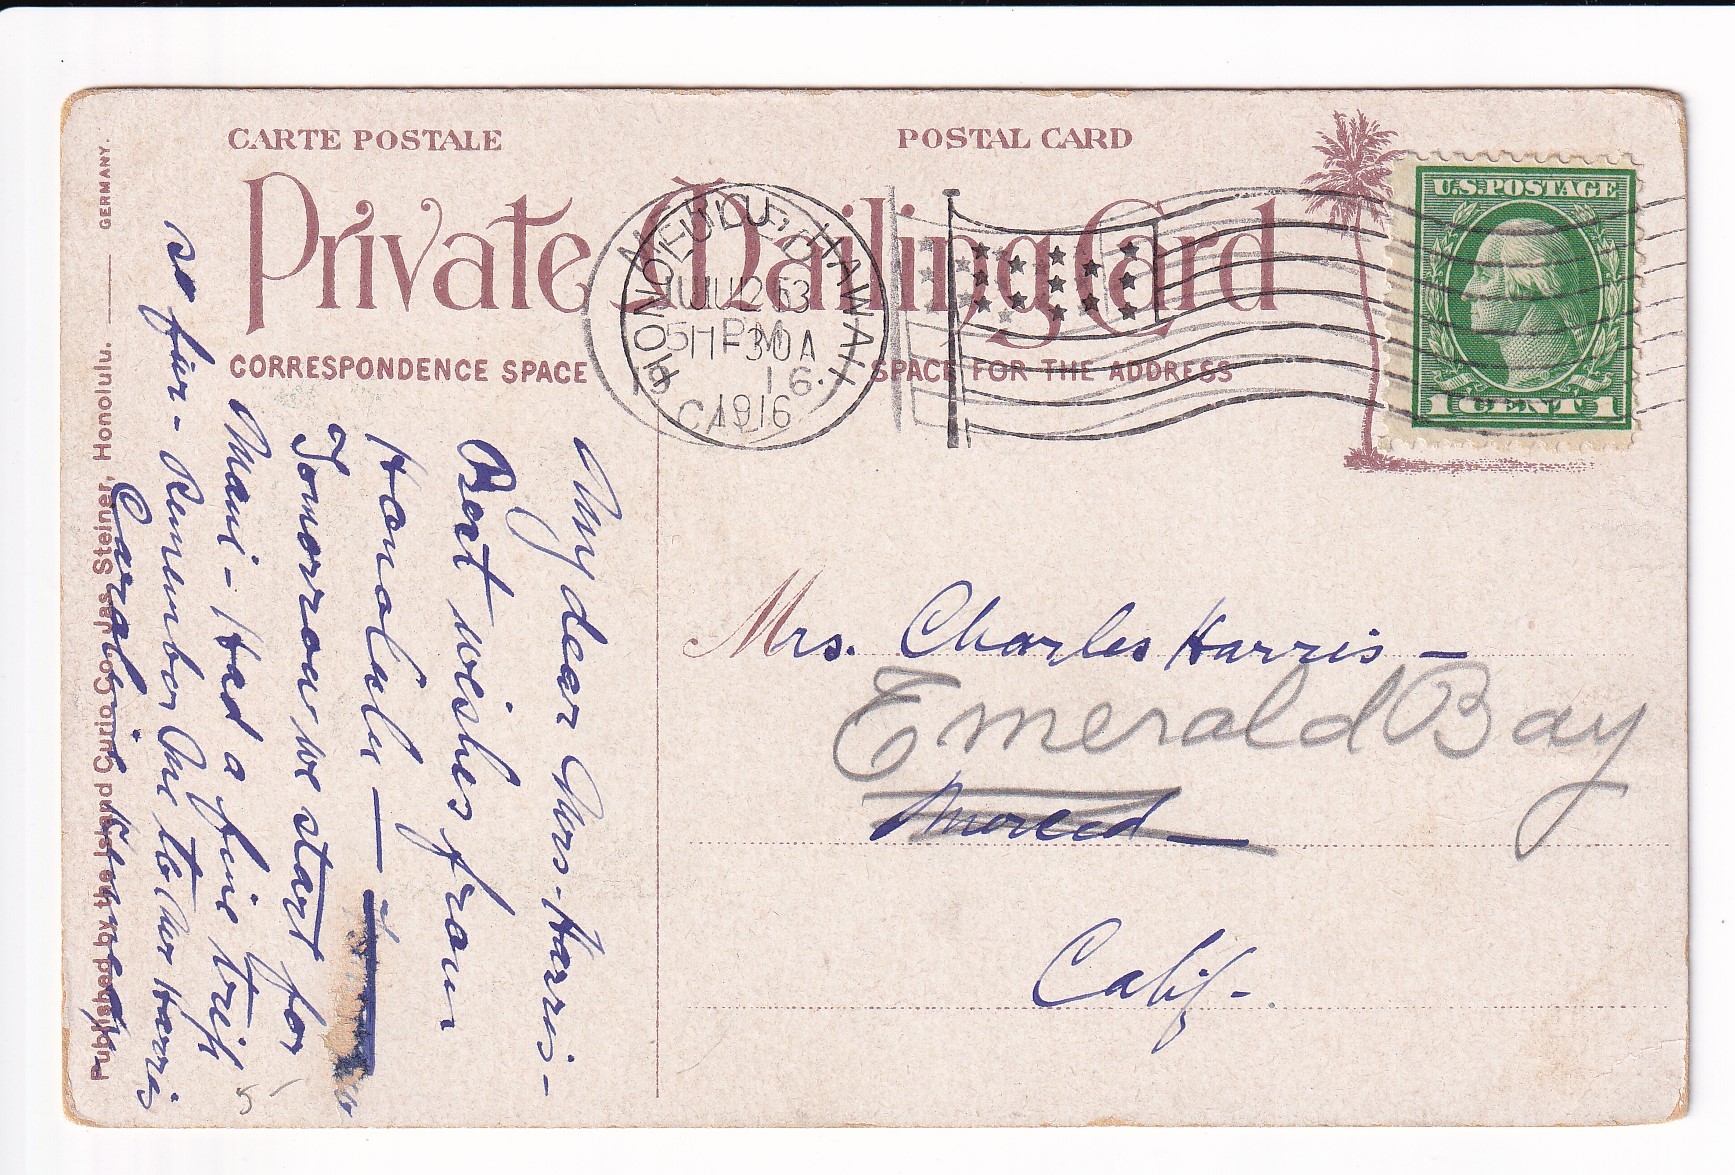 CARTE POSTALE
POSTAL CARD
Private Mailing Card
CORRESPONDENCE SPACE
SPACE FOR THE ADDRESS
HONOLULU, HAWAII
1916
U.S. POSTAGE
1 CENT 1
Mrs. Charles Harris -
Emerald Bay
Merced -
Calif -.
My dear Mrs. Harris -
Best wishes from
Honolulu -
Tomorrow we start for
Maui - Had a fine trip
so far - Remember me to Mr Harris
Published by the Island Curio Co. Jas. Steiner, Honolulu. GERMANY.